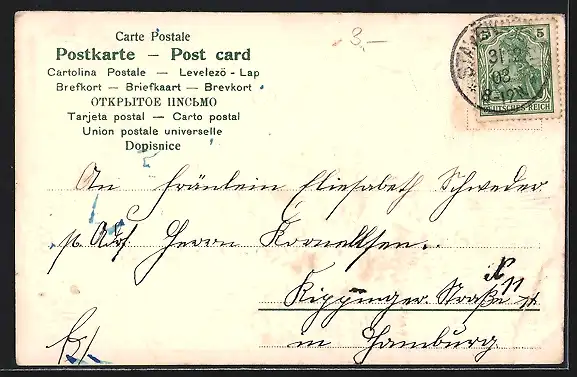 Carte Postale
Postkarte — Post card
Cartolina Postale — Levelezö-Lap
Brefkort — Briefkaart — Brevkort
ОТКРЫТОЕ ПИСЬМО
Tarjeta postal — Carto postal
Union postale universelle
Dopisnice
3.-
5
DEUTSCHES REICH
An Fräulein Eliesabeth Schweder
p. Adr. Herrn Kornellsen.
Kippinger Straße 11
in Hamburg